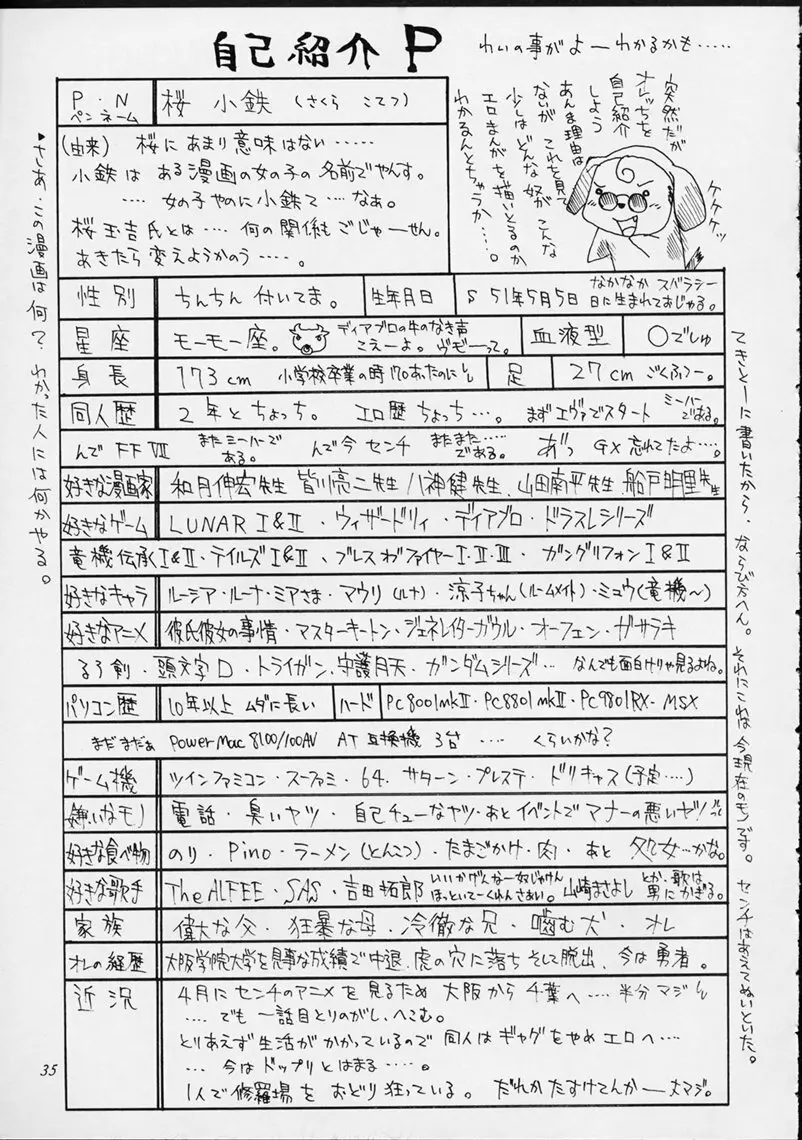 自己紹介 P
わいの事がよーわかるかも……
突然だが
オレっちを
自己紹介
しよう
あんま理由は
ないが これを見て
少しは どんな奴が こんな
エロまんがを描いとるのか
わかるんとちゃうか…。
ケケケッ
P.N
ペンネーム
桜 小鉄 (さくら こてつ)
(由来) 桜にあまり意味はない……
小鉄は ある漫画の女の子の名前でやんす。
…. 女の子やのに小鉄て …. なぁ。
桜玉吉氏とは …. 何の関係もごじゃーせん。
あきたら変えようかのう ….。
♥さあ、この漫画は何? わかった人には何かやる。
性別 ちんちん付いてま。 生年月日 S 51年5月5日 なかなか スバラシー
日に生まれておじゃる。
星座 モーモー座。 ディアブロの牛のなき声
こえーよ。ヴモーって。 血液型 ○でしゅ
身長 173cm 小学校卒業の時170あったのに 足 27cm ごくふつー。
同人歴 2年とちょっち。 エロ歴ちょっち…。 まずエヴァでスタート ミーハー
である。
んで FFⅦ またミーハーで
ある。 んで今 センチ またまた……
である。 あっ GX忘れてたよ….。
好きな漫画家 和月伸宏先生 皆川亮二先生 八神健先生、山田南平先生、船戸明里先生
好きなゲーム LUNAR Ⅰ&Ⅱ・ウィザードリィ・ディアブロ・ドラスレシリーズ
竜機伝承Ⅰ&Ⅱ・テイルズⅠ&Ⅱ、ブレス オブ ファイヤーⅠ・Ⅱ・Ⅲ・ ガングリフォンⅠ&Ⅱ
好きなキャラ ルーシア・ルーナ・ミアさま・マウリ(ルナ)・涼子ちゃん(ルームメイト)・ミュウ(竜機〜)
好きなアニメ 彼氏彼女の事情・マスターキートン・ジェネレイターガウル・オーフェン・ガサラキ
るろ剣・頭文字D・トライガン、守護月天・ガンダムシリーズ… なんでも面白けりゃ見るよね。
パソコン歴 10年以上 ムダに長い ハード PC8001mkⅡ・PC8801mkⅡ・PC9801RX・MSX
まだまだぁ Power Mac 8100/100AV AT互換機 3台 …. くらいかな?
ゲーム機 ツインファミコン・スーファミ・64. サターン・プレステ・ドリキャス(予定….)
嫌いなモノ 電話・臭いヤツ・自己チューなヤツ・あとイベントでマナーの悪いヤツ!
好きな食べ物 のり・Pino・ラーメン(とんこつ)・たまごかけ・肉・あと 処女…かな。
好きな歌手 The ALFEE・SAS・吉田拓郎 いいかげんなー奴じゃけん
ほっといてーくれんさぁい。 山崎まさよし とか、歌は
男にかぎる。
家族 偉大な父・狂暴な母・冷徹な兄・噛む犬・オレ
オレの経歴 大阪学院大学を見事な成績で中退、虎の穴に落ちそして脱出、今は勇者。
近況 4月にセンチのアニメを見るため 大阪から千葉へ…. 半分マジ
…. でも 一話目とりのがし、へこむ。
とりあえず生活がかかっているので 同人はギャグをやめエロへ…
… 今はドップリとはまる….。
1人で修羅場を おどり狂っている。 だれかたすけてんかー 大マジ。
てきとーに書いたから、ならび方へん。それにこれは今現在のモンです。センチはあえてぬいといた。
35